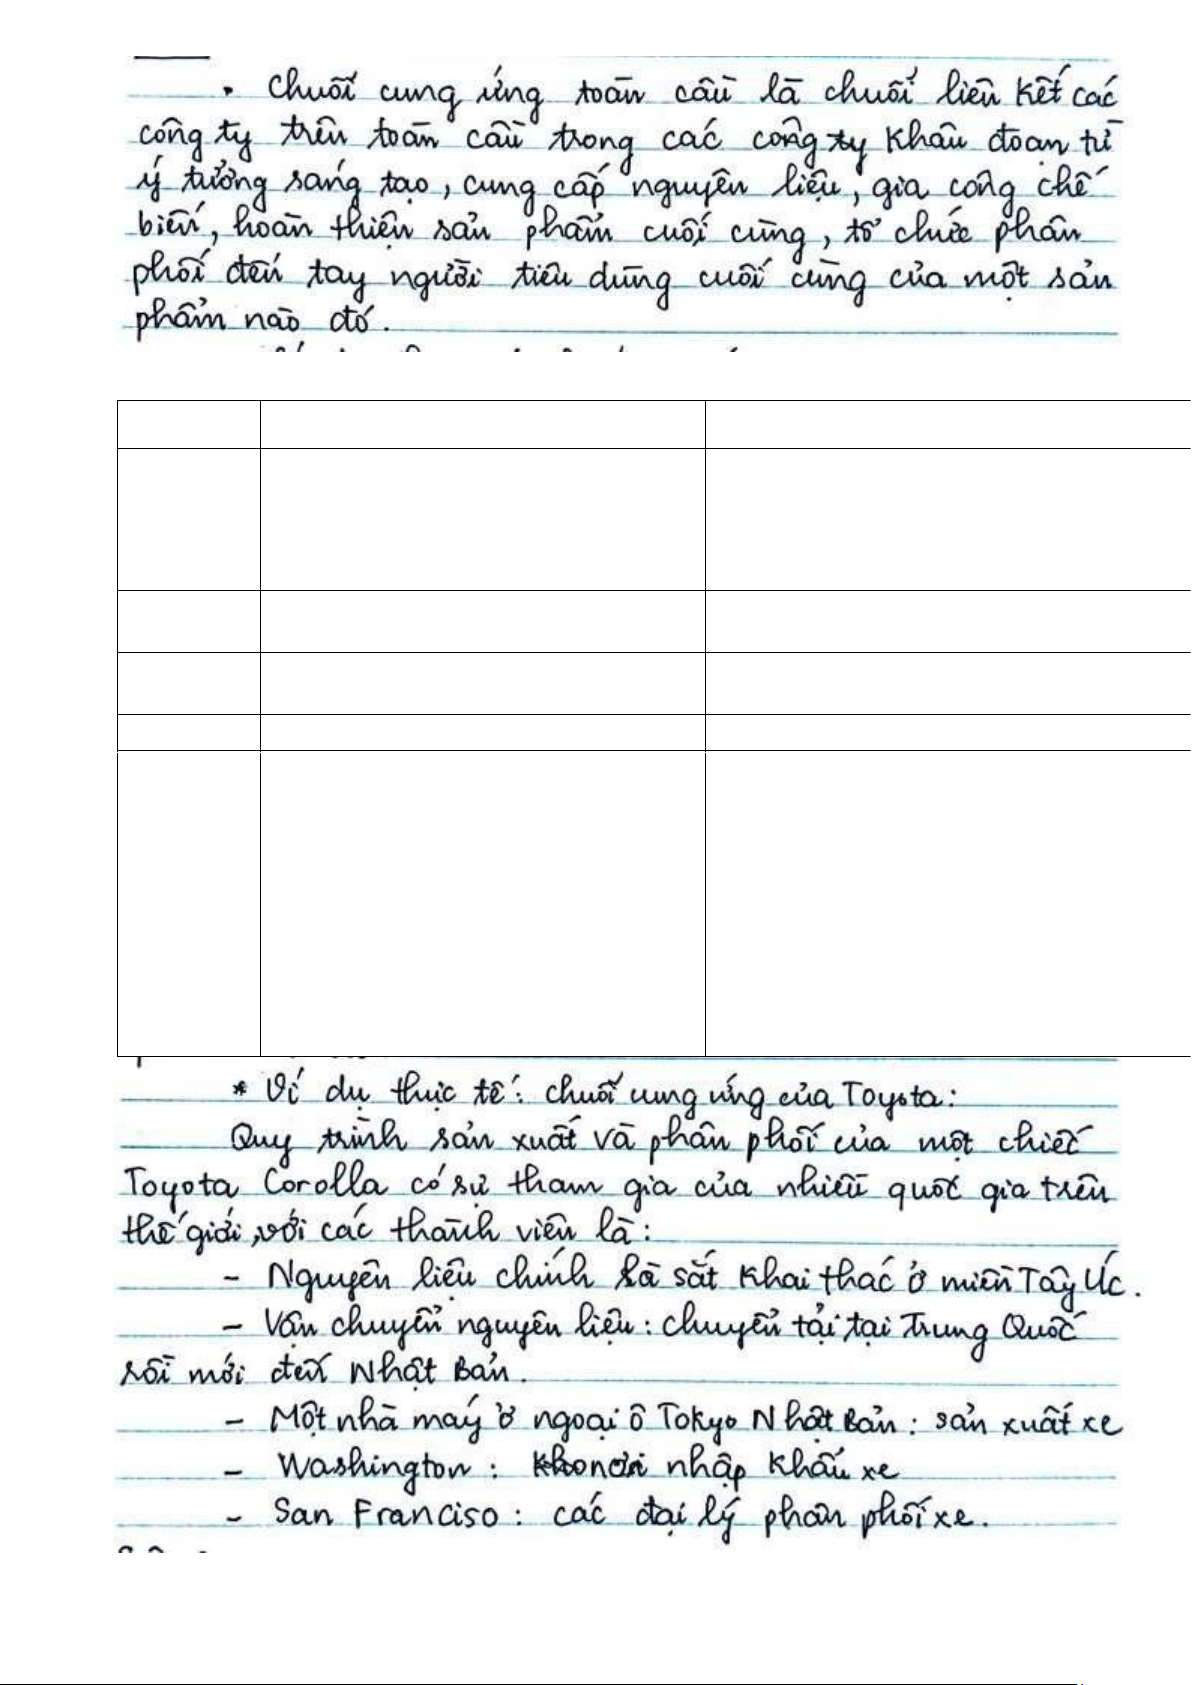 • Chuỗi cung ứng toàn cầu là chuỗi liên kết các
công ty trên toàn cầu trong các công ty khâu đoạn từ
ý tưởng sáng tạo, cung cấp nguyên liệu, gia công chế
biến, hoàn thiện sản phẩm cuối cùng, tổ chức phân
phối đến tay người tiêu dùng cuối cùng của một sản
phẩm nào đó.
* Ví dụ thực tế: chuỗi cung ứng của Toyota:
Quy trình sản xuất và phân phối của một chiếc
Toyota Corolla có sự tham gia của nhiều quốc gia trên
thế giới, với các thành viên là:
- Nguyên liệu chính là sắt khai thác ở miền Tây Úc.
- Vận chuyển nguyên liệu: chuyển tải tại Trung Quốc
rồi mới đến Nhật Bản.
- Một nhà máy ở ngoại ô Tokyo Nhật Bản: sản xuất xe
- Washington: nơi nhập khẩu xe
- San Franciso: các đại lý phân phối xe.